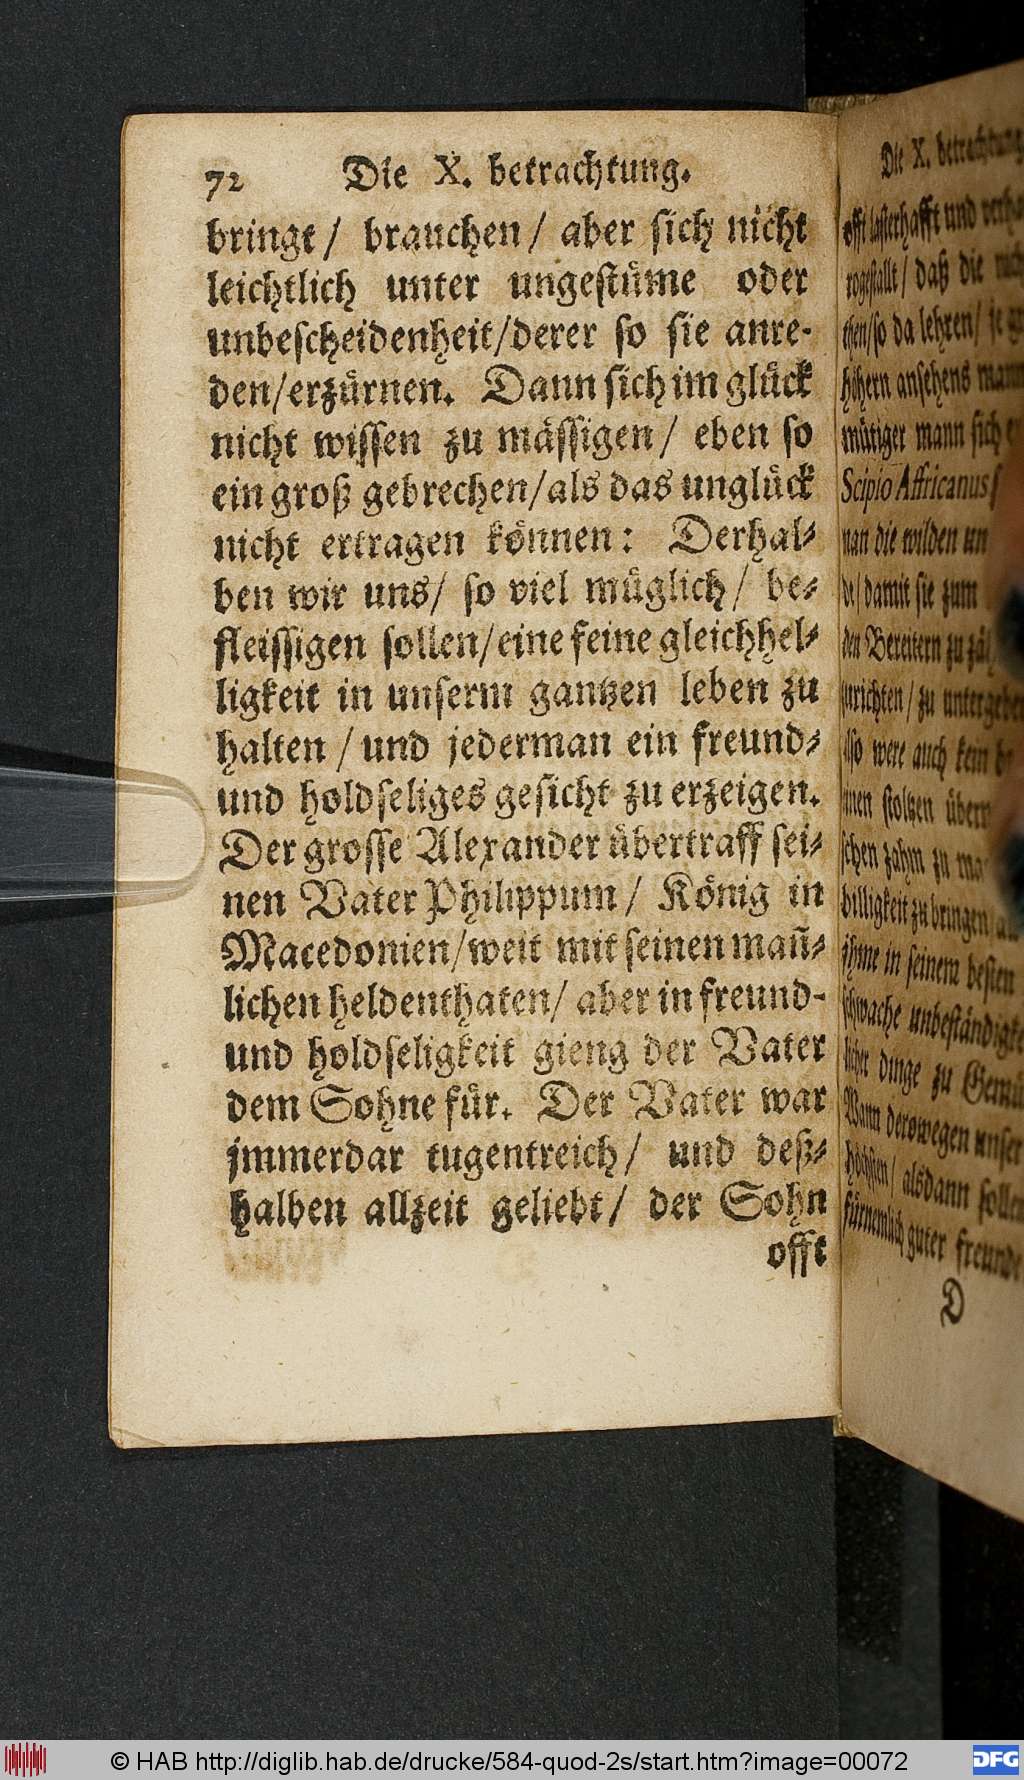 72 Die X. betrachtung.
bringt / brauchen / aber sich nicht
leichtlich unter ungestüme oder
unbescheidenheit/derer so sie anre-
den/erzürnen. Dann sich im glück
nicht wissen zu mässigen / eben so
ein groß gebrechen/als das unglück
nicht ertragen können: Derhal-
ben wir uns/ so viel müglich / be-
fleissigen sollen/eine feine gleichhel-
ligkeit in unserm gantzen leben zu
halten / und jederman ein freund-
und holdseliges gesicht zu erzeigen.
Der grosse Alexander übertraff sei-
nen Vater Philippum / König in
Macedonien/weit mit seinen mañ-
lichen heldenthaten/ aber in freund-
und holdseligkeit gieng der Vater
dem Sohne für. Der Vater war
jmmerdar tugentreich / und deß-
halben allzeit geliebt / der Sohn
offt
Die X. betrachtung
offt lasterhafft und
/ daß die
then/so da lehren/
höhern ansehens
mütiger mann sich
Scipio Affricanus
man die wilden un
de/ damit sie zum
den Bereitern zu
zurichten / zu untergeben
also were auch kein
einen stoltzen
schen zahm zu
billigkeit zu bringen
ihme in seinem besten
schwache unbeständigke
licher dinge zu Gemü
Wann derowegen unser
höchsten / alsdann sollen
fürnemlich guter freunde
D
© HAB http://diglib.hab.de/drucke/584-quod-2s/start.htm?image=00072
DFG